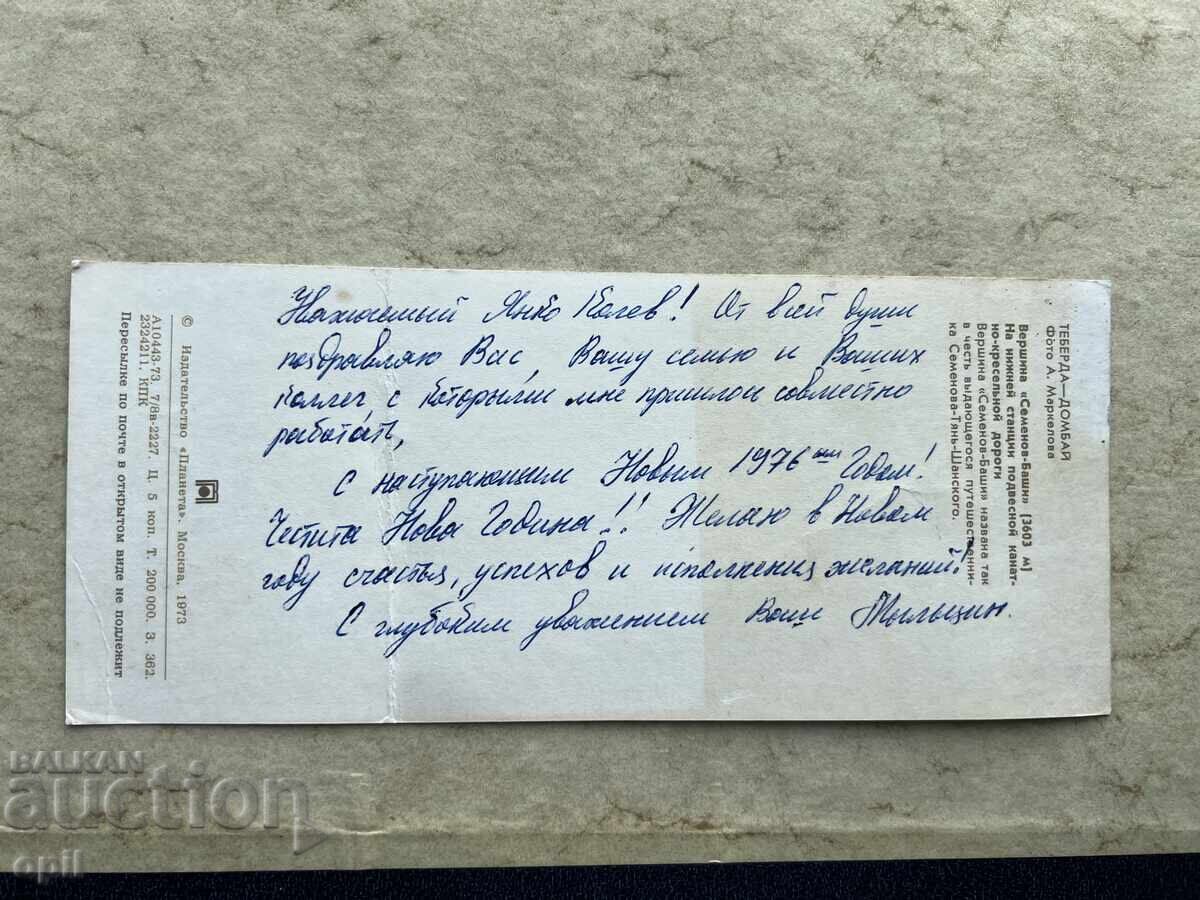 Уважаемый Янко Колев! От всей души
поздравляю Вас, Вашу семью и Ваших
коллег, с которыми мне пришлось совместно
работать,
С наступающим Новым 1976 ым Годом!
Честита Нова Година!! Желаю в Новом
году счастья, успехов и исполнения желаний!
С глубоким уважением Ваш
ТЕБЕРДА—ДОМБАЙ
Фото А. Маркелова
Вершина «Семенов-Баши» (3603 м)
На нижней станции подвесной канат-
но-кресельной дороги
Вершина «Семенов-Баши» названа так
в честь выдающегося путешественни-
ка Семенова-Тянь-Шанского.
© Издательство «Планета». Москва. 1973
А10443-73. 7/8в-2227. Ц. 5 коп. Т. 200 000. З. 362.
2324211. КПК
Пересылке по почте в открытом виде не подлежит
BALKAN
auction
opil